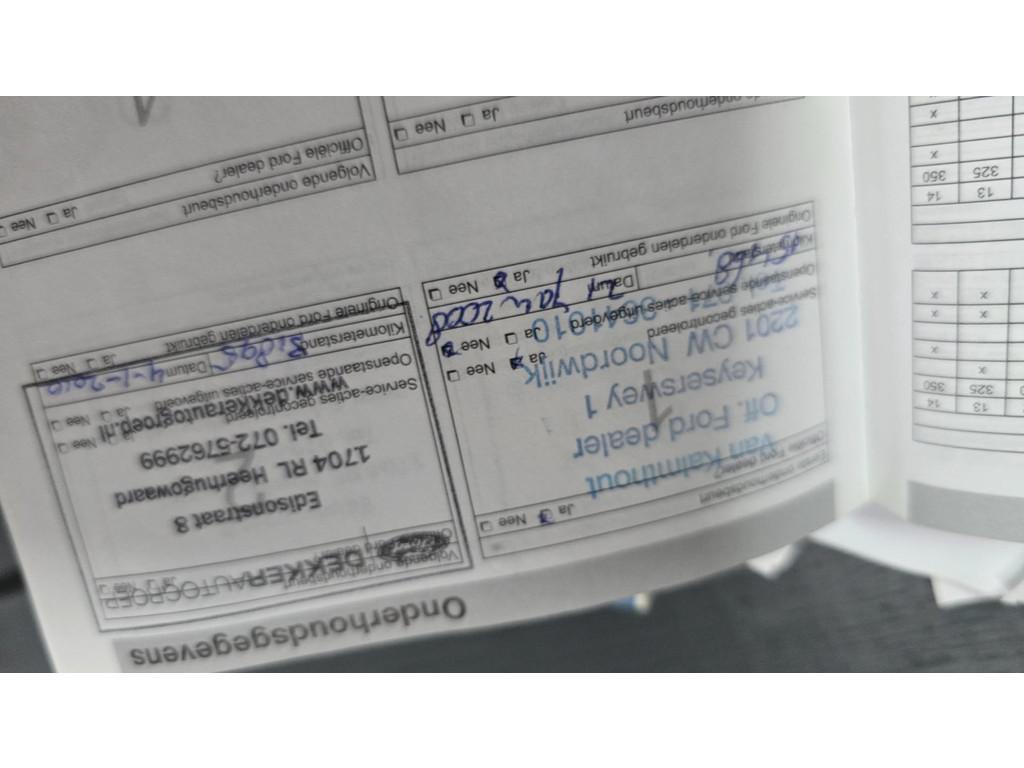 Onderhoudsgegevens
Eerste onderhoudsbeurt
Officiële Ford dealer?
Ja Nee
van Kalmthout
Off. Ford dealer
Keyserswey 1
2201 CW Noordwijk
1
Service-acties gecontroleerd
Ja Nee
Openstaande service-acties uitgevoerd
Ja Nee
Kilometerstand
Datum
21 Jan 2008
Originele Ford onderdelen gebruikt
Ja Nee
Volgende onderhoudsbeurt
Ja Nee
DEKKERAUTOGROEP
Edisonstraat 8
1704 RL Heerhugowaard
Tel. 072-5762999
www.dekkerautogroep.nl
2
Service-acties gecontroleerd
Ja Nee
Openstaande service-acties uitgevoerd
Ja Nee
Kilometerstand
Datum 4-1-2010
Originele Ford onderdelen gebruikt
Ja Nee
onderhoudsbeurt
Ja Nee
Volgende onderhoudsbeurt
Officiële Ford dealer?
Ja Nee
4
13 14
325 350
x
x x
x x
x x
13 14
325 350
x
x